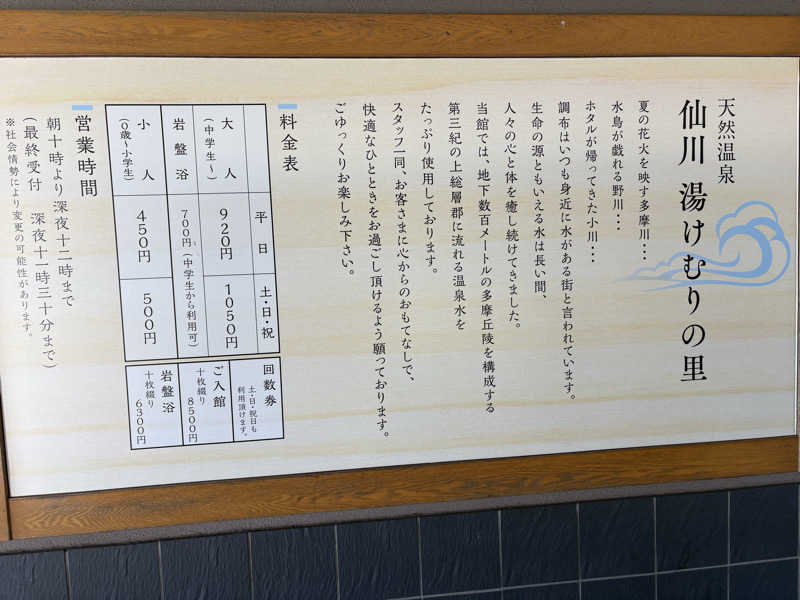 天然温泉
仙川 湯けむりの里
夏の花火を映す多摩川・・・
水鳥が戯れる野川・・・
ホタルが帰ってきた小川・・・
調布はいつも身近に水がある街と言われています。
生命の源ともいえる水は長い間、
人々の心と体を癒し続けてきました。
当館では、地下数百メートルの多摩丘陵を構成する
第三紀の上総層郡に流れる温泉水を
たっぷり使用しております。
スタッフ一同、お客さまに心からのおもてなしで、
快適なひとときをお過ごし頂けるよう願っております。
ごゆっくりお楽しみ下さい。
料金表
平日
土・日・祝
大人
(中学生〜)
920円
1050円
岩盤浴
700円(中学生から利用可)
小人
(0歳〜小学生)
450円
500円
回数券
土・日・祝日も
利用頂けます。
ご入館
十枚綴り
8500円
岩盤浴
十枚綴り
6300円
営業時間
朝十時より深夜十二時まで
(最終受付 深夜十一時三十分まで)
※社会情勢により変更の可能性があります。